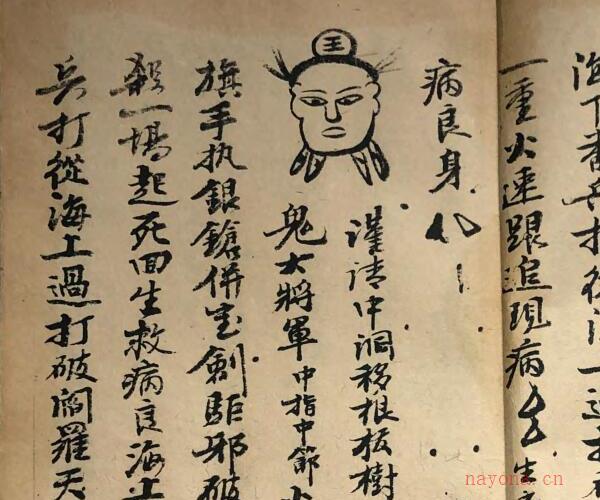 海下番兵打從海上過打
一重火速跟追現病
生
病良身
王
謹請中洞移根拔樹
鬼大將軍中指中節
旗手执銀鎗併宝劍駈邪破
殺一場起死回生救病良海上
兵打從海上過打破閻羅天
nayona.cn